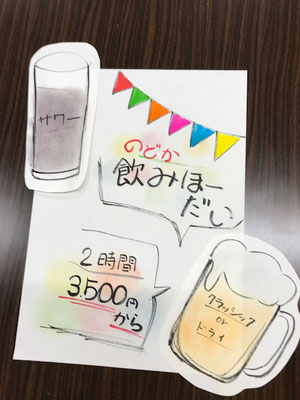 サワー
のどか
飲みほー
だい
2時間
3.500円
から
クラッシック
or
ドライ